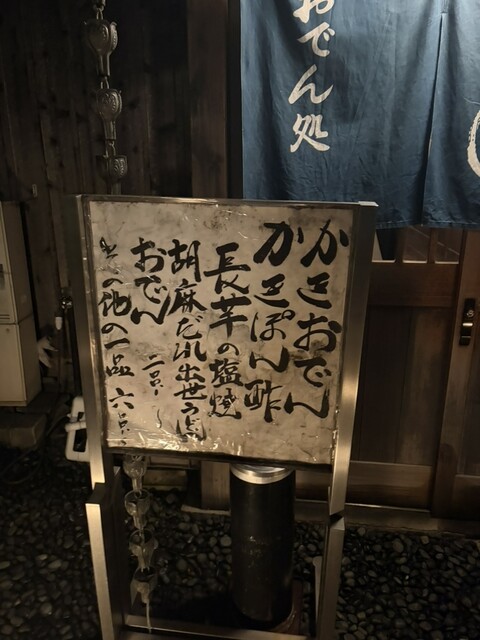 おでん処
かきおでん
かきぽん酢
長芋の塩焼
胡麻だれ出世うどん
おでん 二品〜
その他の一品 六品〜